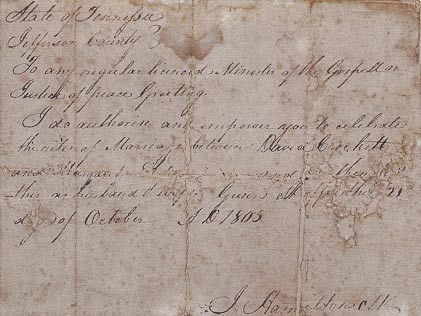 State of Tennessee
Jefferson County
To any regular licenced Minister of the Gospell or
Justice of peace Greeting.
I do authorise and empower you to celebrate
the rites of Marriage between David Crockett
and Margaret and join them
this as husband & wife Given at office the 21
day of October A D 1805
J Hamilton